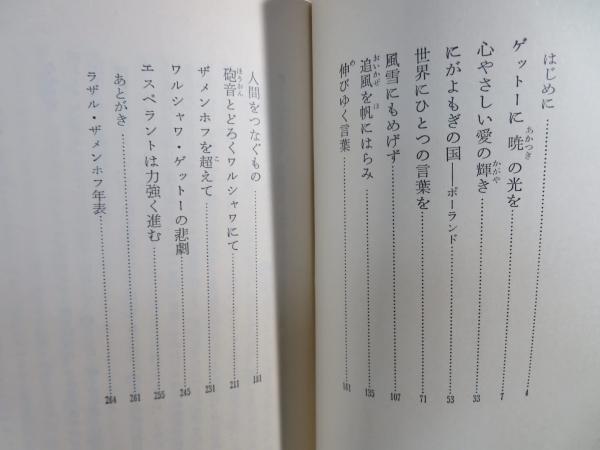 はじめに……4
ゲットーに暁の光を……7
心やさしい愛の輝き……33
にがよもぎの国——ポーランド……53
世界にひとつの言葉を……71
風雪にもめげず……107
追風を帆にはらみ……135
伸びゆく言葉……161
人間をつなぐもの……181
砲音とどろくワルシャワにて……211
ザメンホフを超えて……231
ワルシャワ・ゲットーの悲劇……245
エスペラントは力強く進む……255
あとがき……261
ラザル・ザメンホフ年表……264